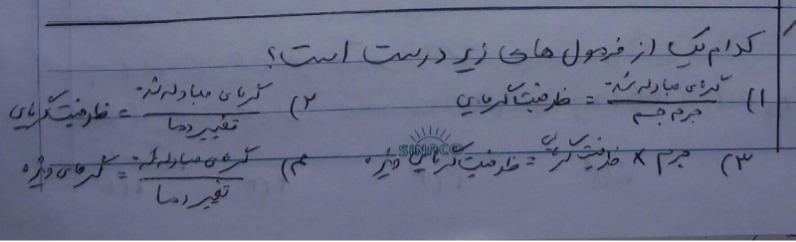 کدام یک از فرمول های زیر درست است؟
۱) گرمای مبادله شده / جرم جسم = ظرفیت گرمایی ۲) گرمای مبادله شده / تغییر دما = ظرفیت گرمایی
۳) جرم × ظرفیت گرمایی = ظرفیت گرمایی ویژه ۴) گرمای مبادله شده / تغییر دما = گرمای ویژه
SINACO